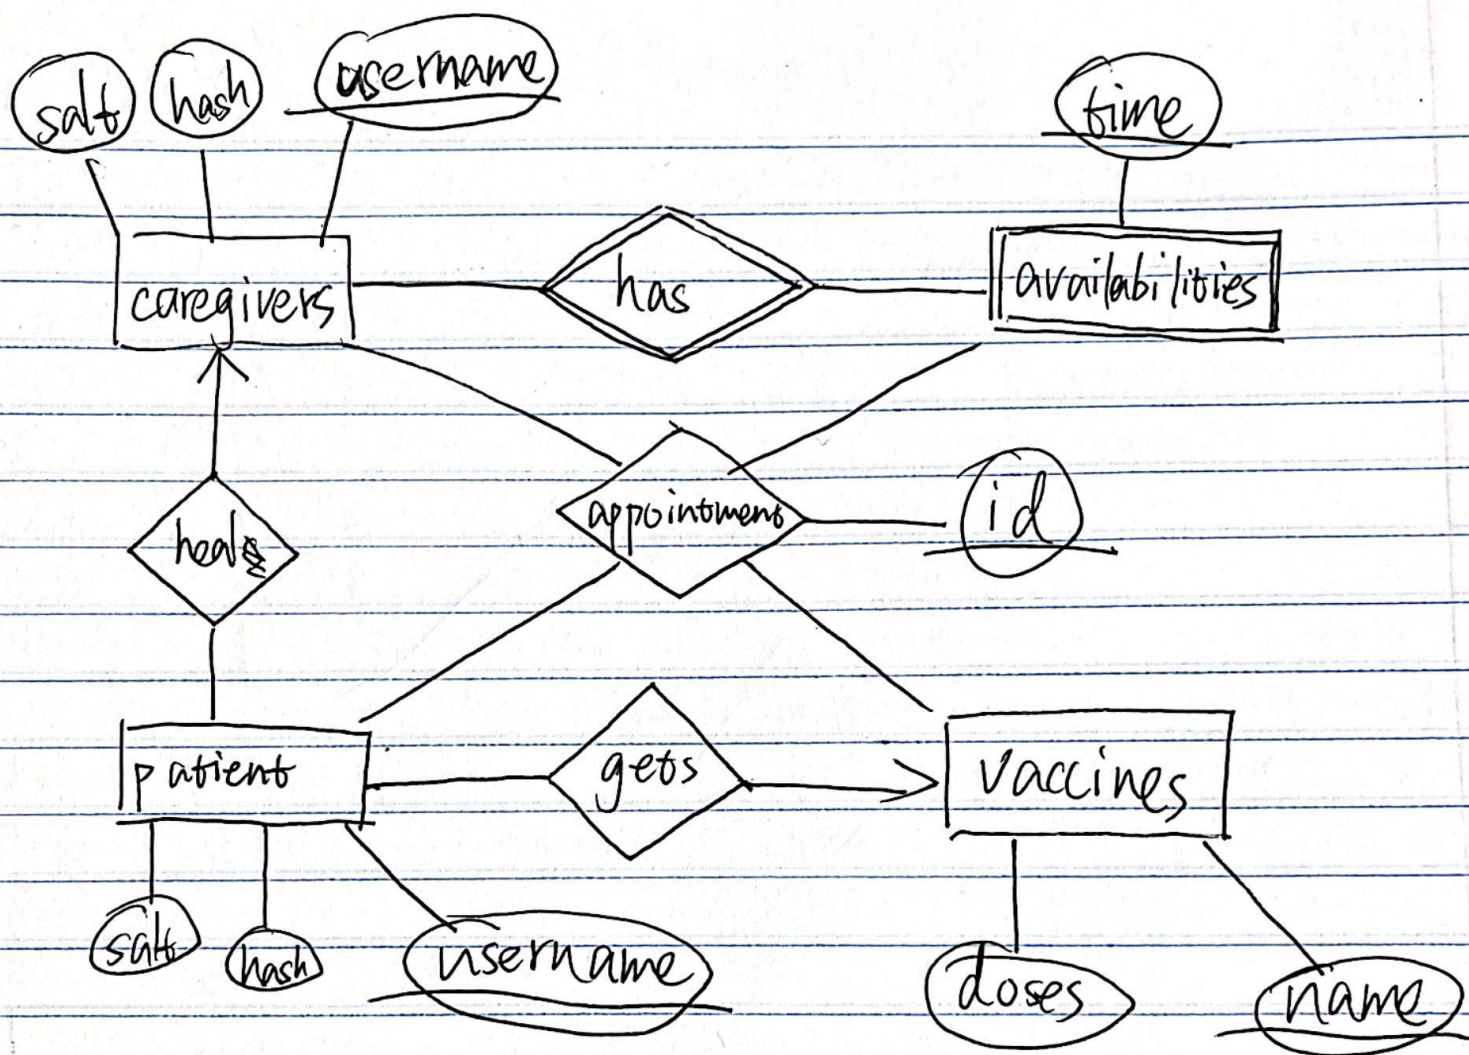 salt hash username
time
caregivers has availabilities
appointment id
patient gets vaccines
salt hash username
doses name